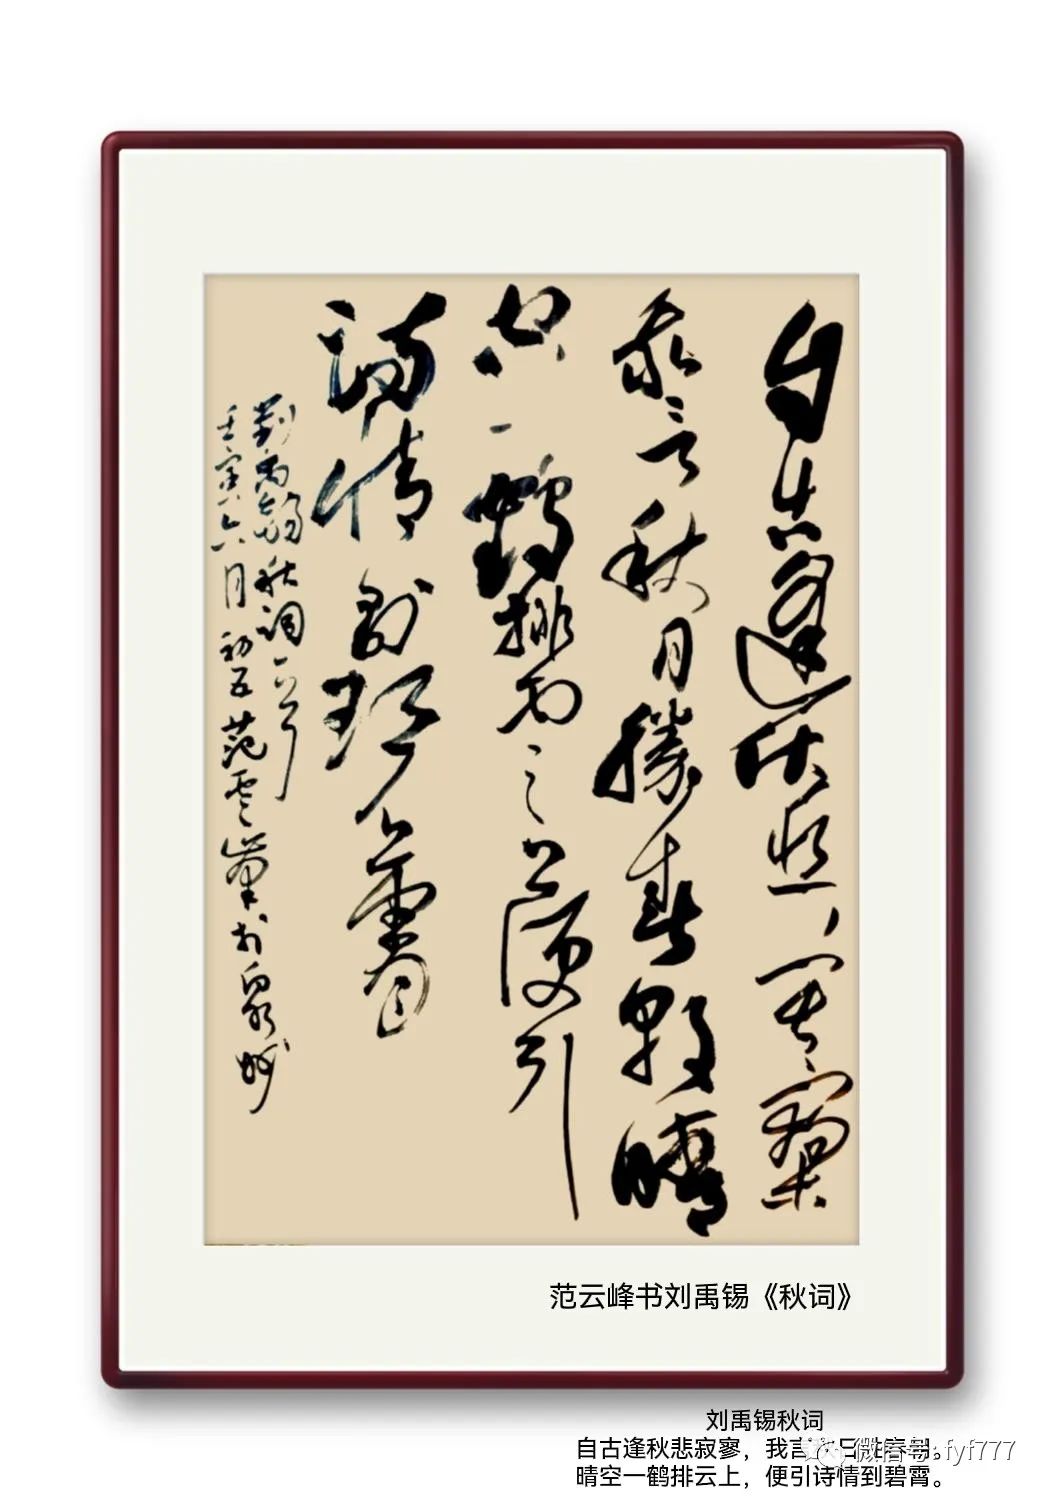 自古逢秋悲寂寥
我言秋日勝春朝晴
空一鶴排雲上便引
詩情到碧霄
劉禹錫秋詞一首
壬寅六月初五范雲峯於泉城
范云峰书刘禹锡《秋词》
刘禹锡秋词
自古逢秋悲寂寥，我言秋日胜春朝。
晴空一鹤排云上，便引诗情到碧霄。
微信号:fyf777